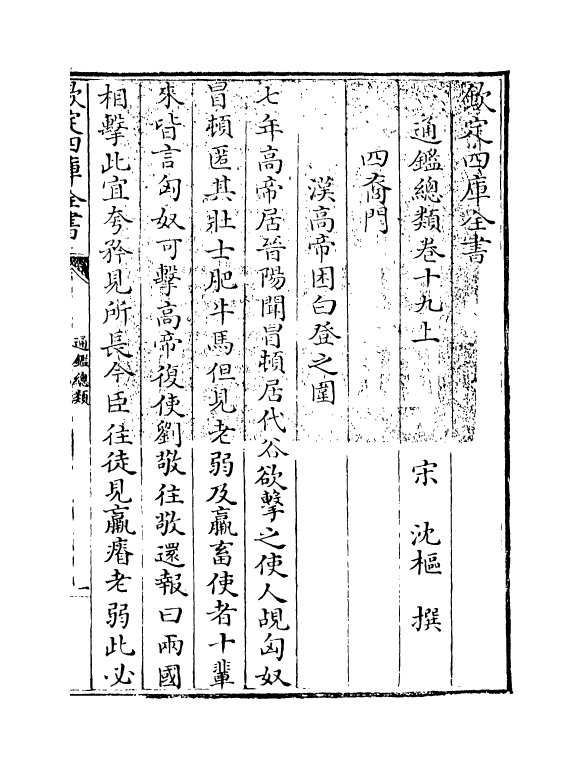 欽定四庫全書
通鑑總類卷十九上
宋 沈樞 撰
四裔門
漢高帝困白登之圍
七年高帝居晉陽聞冒頓居代谷欲擊之使人覘匈奴
冒頓匿其壯士肥牛馬但見老弱及羸畜使者十輩
來皆言匈奴可擊高帝復使劉敬往敬還報曰兩國
相擊此宜夸矜見所長今臣往徒見羸瘠老弱此必
欽定四庫全書
通鑑總類
一